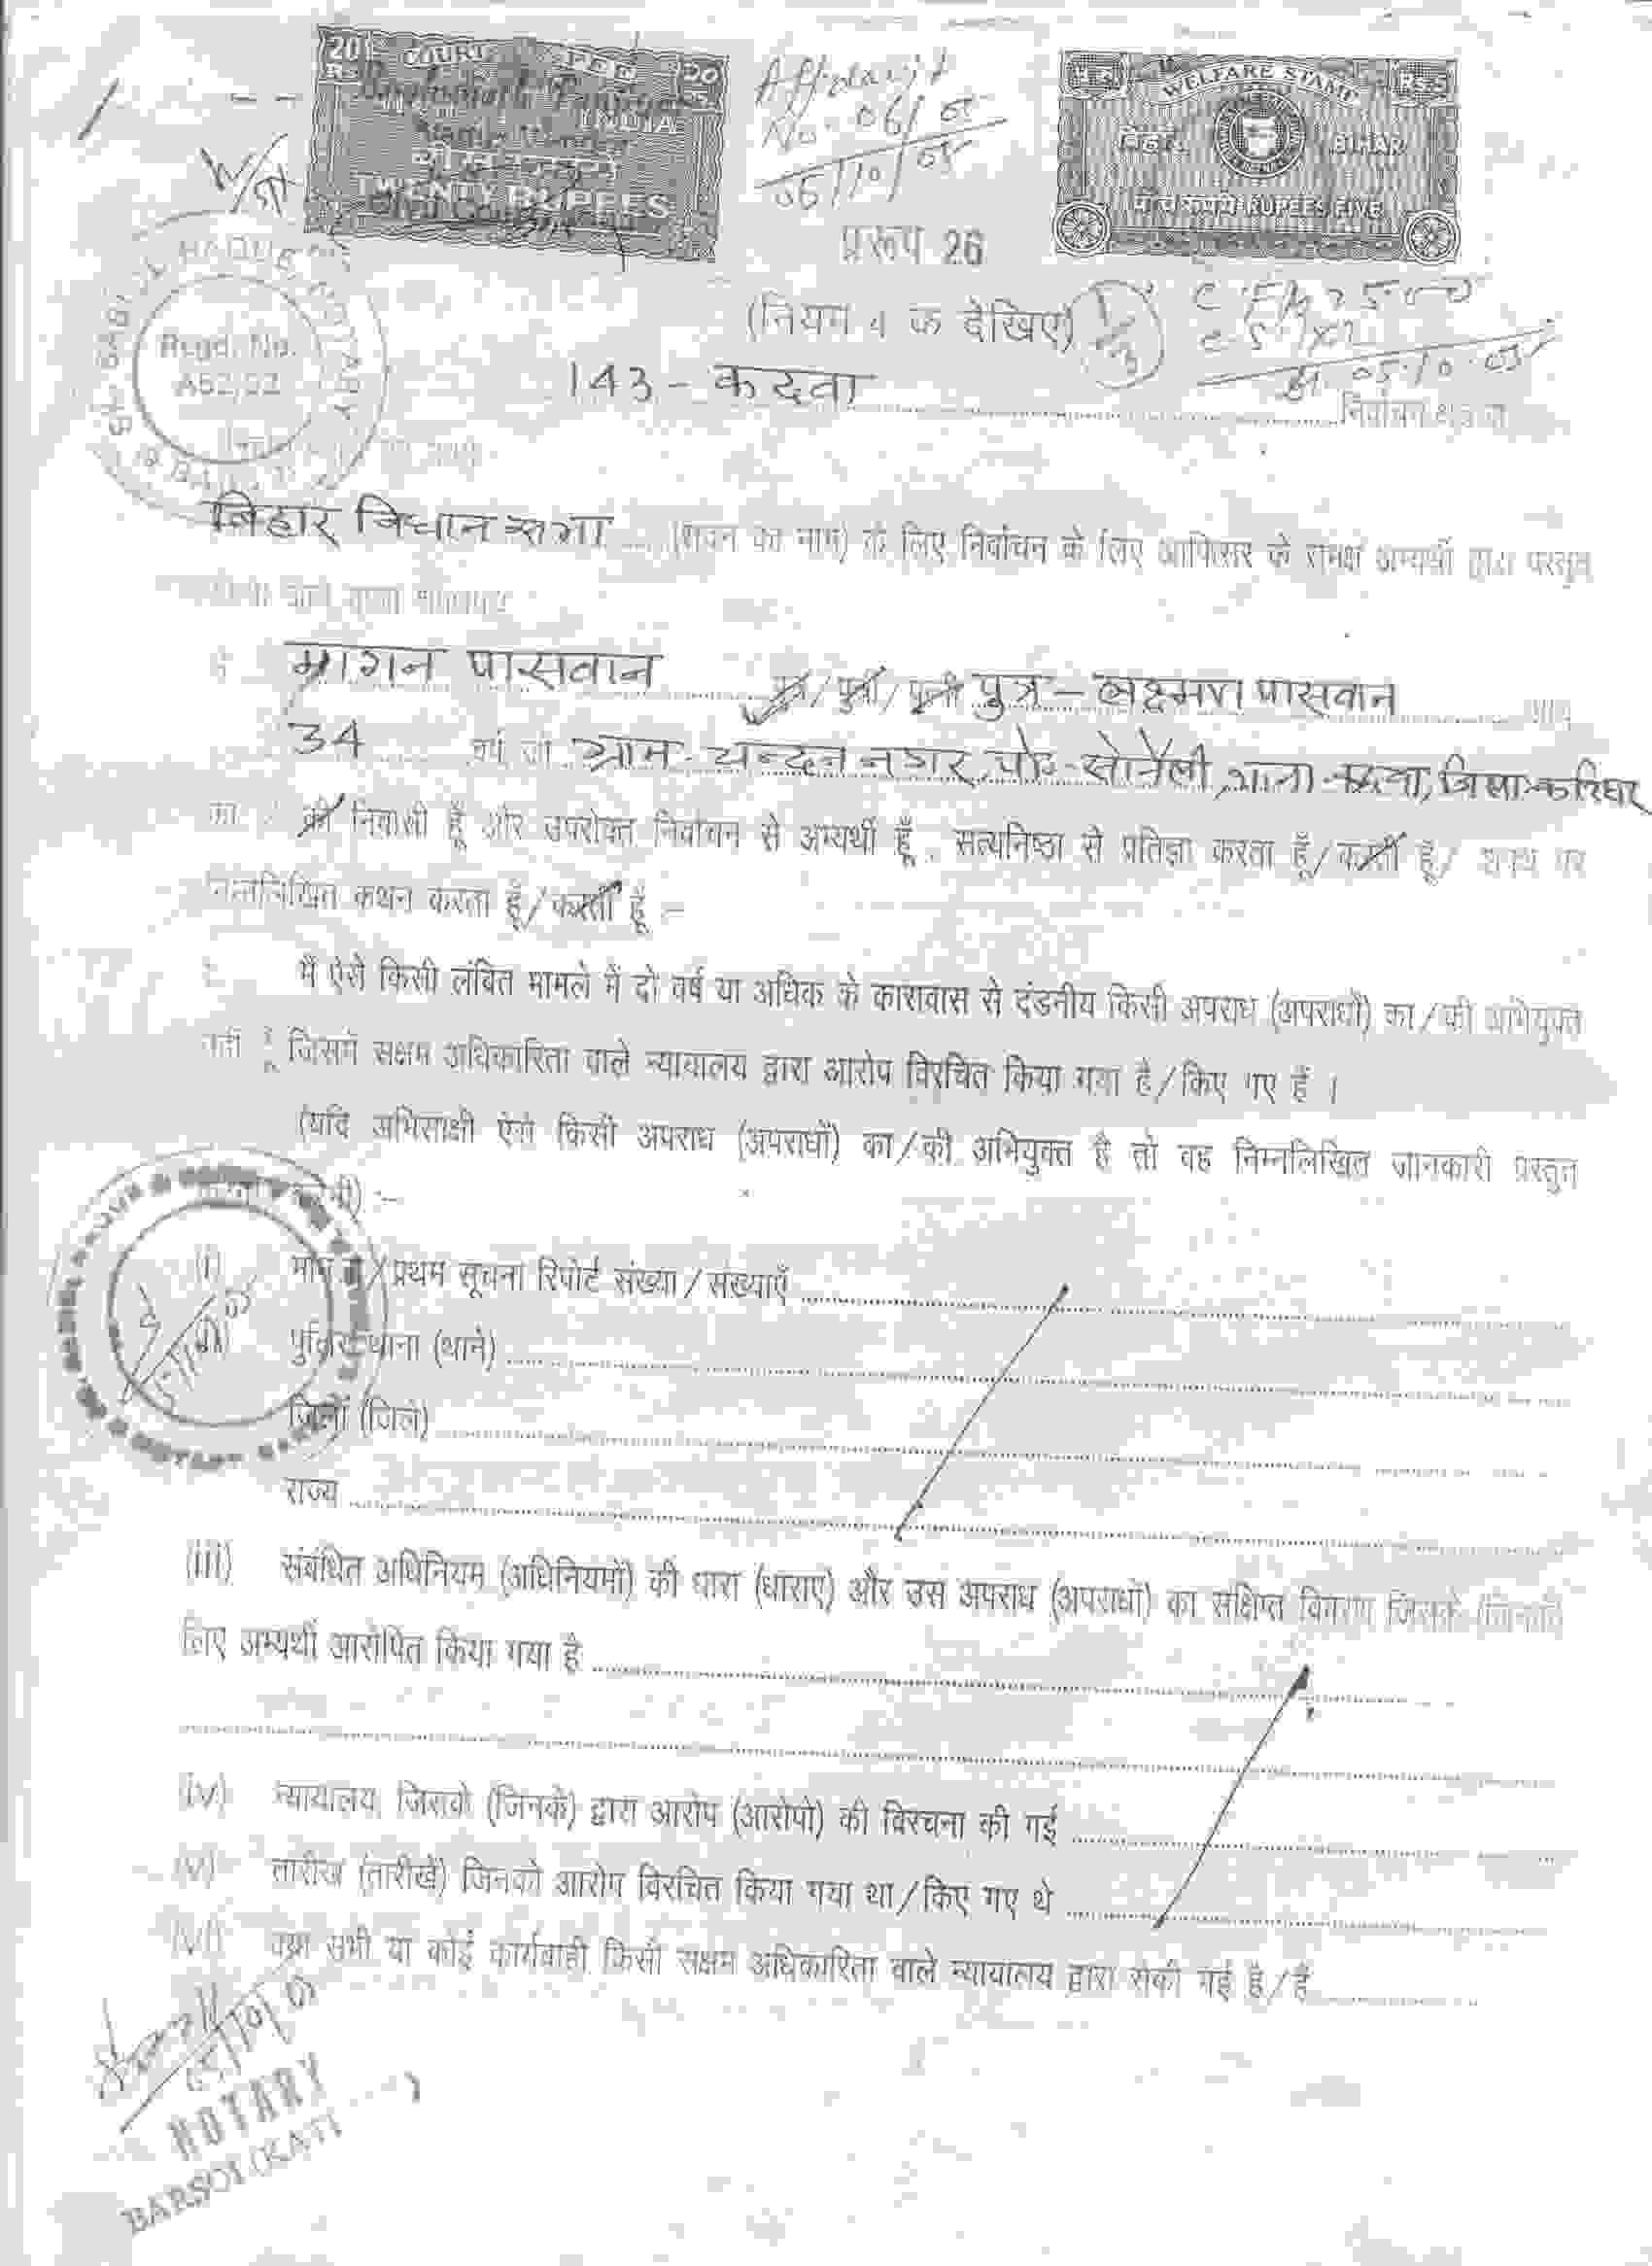 20 COURT FEE 20
Rs. Rs.
INDIA
TWENTY RUPEES
Affidavit
No. 06/05
05/10/05
Rs.5 WELFARE STAMP Rs.5
बिहार BIHAR
पाँच रुपये RUPEES FIVE
प्ररूप 26
(नियम 4 क देखिए)
HAQUE NOTARY
Regd. No.
143 - कदवा
निर्वाचन क्षेत्र
बिहार विधान सभा (सदन का नाम) के लिए निर्वाचन के लिए आफिसर के समक्ष अभ्यर्थी द्वारा प्रस्तुत
मांगन पासवान पुत्र/पुत्री/पत्नी पुत्र - लक्ष्मण पासवान आयु
34 वर्ष जो ग्राम - चन्दन नगर, पो० - सोनैली, थाना - कदवा, जिला - कटिहार
का / की निवासी हूँ और उपरोक्त निर्वाचन से अभ्यर्थी हूँ, सत्यनिष्ठा से प्रतिज्ञा करता हूँ/करती हूँ/ शपथ पर
निम्नलिखित कथन करता हूँ/करती हूँ :-
मैं ऐसे किसी लंबित मामले में दो वर्ष या अधिक के कारावास से दंडनीय किसी अपराध (अपराधों) का/की अभियुक्त
नहीं हूँ जिसमें सक्षम अधिकारिता वाले न्यायालय द्वारा आरोप विरचित किया गया है/किए गए हैं ।
(यदि अभिसाक्षी ऐसे किसी अपराध (अपराधों) का/की अभियुक्त है तो वह निम्नलिखित जानकारी प्रस्तुत
(i) /प्रथम सूचना रिपोर्ट संख्या/संख्याएँ
पुलिस थाना (थाने)
जिलों (जिले)
राज्य
(iii) संबंधित अधिनियम (अधिनियमों) की धारा (धाराएं) और उस अपराध (अपराधों) का संक्षिप्त विवरण जिसके (जिनके)
लिए अभ्यर्थी आरोपित किया गया है
(iv) न्यायालय जिसके (जिनके) द्वारा आरोप (आरोपों) की विरचना की गई
(v) तारीख (तारीखें) जिनको आरोप विरचित किया गया था/किए गए थे
(vi) क्या सभी या कोई कार्यवाही किसी सक्षम अधिकारिता वाले न्यायालय द्वारा रोकी गई है/हैं
NOTARY
BARSOI (KATI